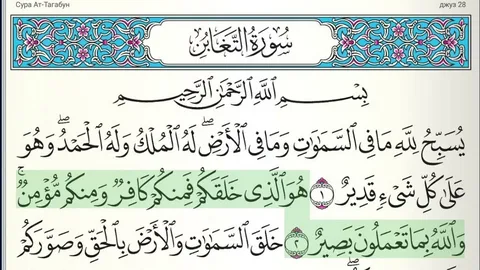 Сура Ат-Тагабун джуз 28
سُورَةُ التَّغَابُنِ
بِسْمِ اللَّهِ الرَّحْمَٰنِ الرَّحِيمِ
يُسَبِّحُ لِلَّهِ مَا فِي السَّمَٰوَٰتِ وَمَا فِي الْأَرْضِ ۖ لَهُ الْمُلْكُ وَلَهُ الْحَمْدُ ۖ وَهُوَ
عَلَىٰ كُلِّ شَيْءٍ قَدِيرٌ ١ هُوَ الَّذِي خَلَقَكُمْ فَمِنكُمْ كَافِرٌ وَمِنكُم مُّؤْمِنٌ ۚ
وَاللَّهُ بِمَا تَعْمَلُونَ بَصِيرٌ ٢ خَلَقَ السَّمَٰوَٰتِ وَالْأَرْضَ بِالْحَقِّ وَصَوَّرَكُمْ